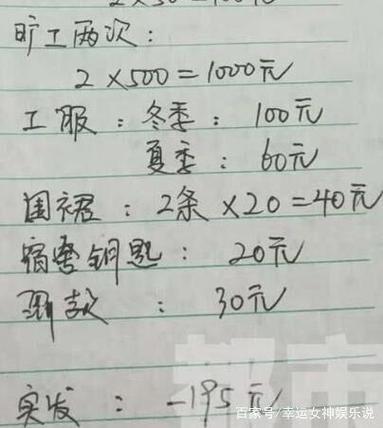 旷工两次：
2×500=1000元
工服：冬季：100元
夏季：60元
围裙：2条×20=40元
宿舍钥匙：20元
款：30元
实发：-195元
百家号/幸运女神娱乐说